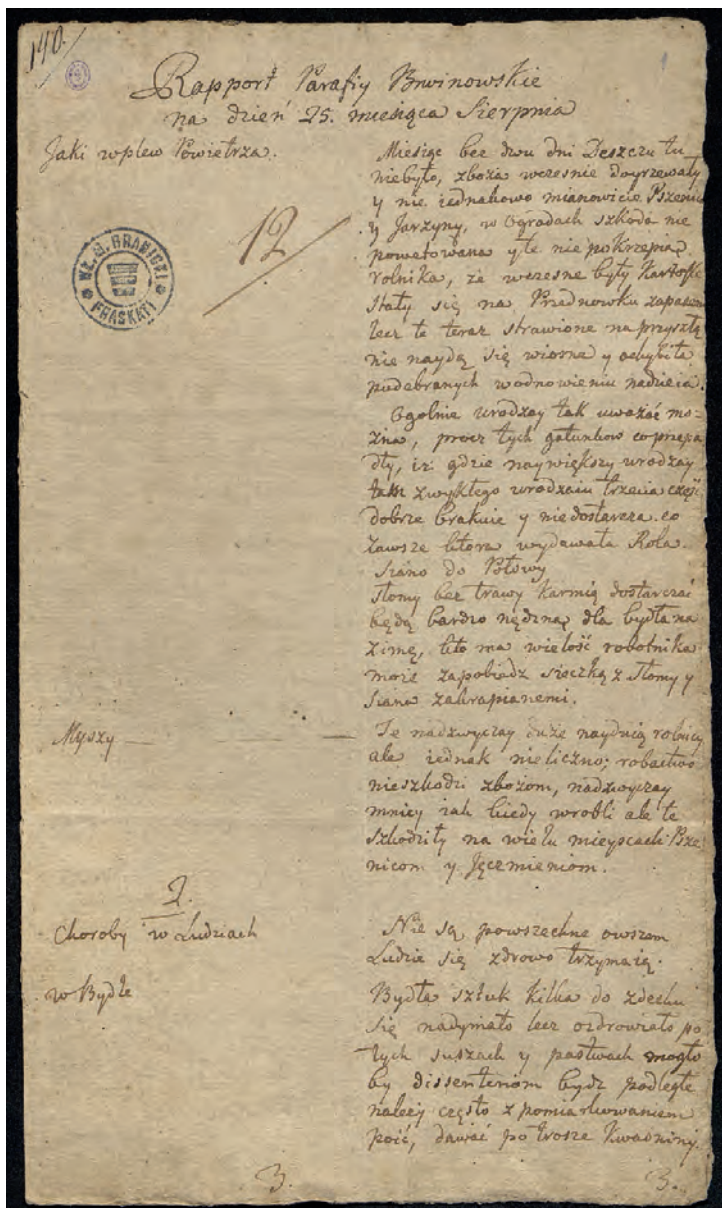 140.
Rapport Parafiy Brwinowskie
na dzień 25. miesiąca Sierpnia
Jaki wplew Powietrza.
12
WŁ. G. BRANICKI
FRASKATI
Miesiąc bez dwu dni Deszczu tu
niebyło, zboża wczesnie doyrzewały
y nie iednakowo mianowicie Pszenice
y Jarzyny, w ogradach szkoda nie
powetowana y te nie pokrzepią
rolnika, że wczesne były Kartofle
stały się na Przednowku zapasem
lecz te teraz strawione na przyszłą
nie naydą się wiosnę y achybiła
podebranych w odnowieniu nadzieia.
Ogolnie urodzay tak uważać mo=
żna, procz tych gatunkow co przepa
dły, iż gdzie naywiększy urodzay
tam zwykłego urodzaiu trzecia część
dobrze brakuie y niedostarcza co
zawsze ktora wydawała Rola.
Siano do Połowy
słomy bez trawy karmią dostarczać
będą bardzo nędzną dla bydła na
zimę, kto ma wielość robotnika
może zapobiadz sieczką z słomy y
siana zakrapianemi.
Myszy
Te nadzwyczay duże naydują rolnicy
ale iednak nieliczno; robactwo
nieszkodzi zbożom, nadzwyczay
mniey iak kiedy wrobli ale te
szkodziły na wielu mieyscach Psze
nicom y Jęczmieniom.
2.
Choroby w Ludziach
Nie są powszechne owszem
Ludzie się zdrowo trzymaią.
w Bydle
Bydła sztuk kilka do zdechu
się nadymało lecz ozdrowiało po
tych suszach y pastwach mogło
by dissenteriom bydz podległe
należy często z pomiarkowaniem
poić, dawać po trosze Kwasniny.
3.
3.